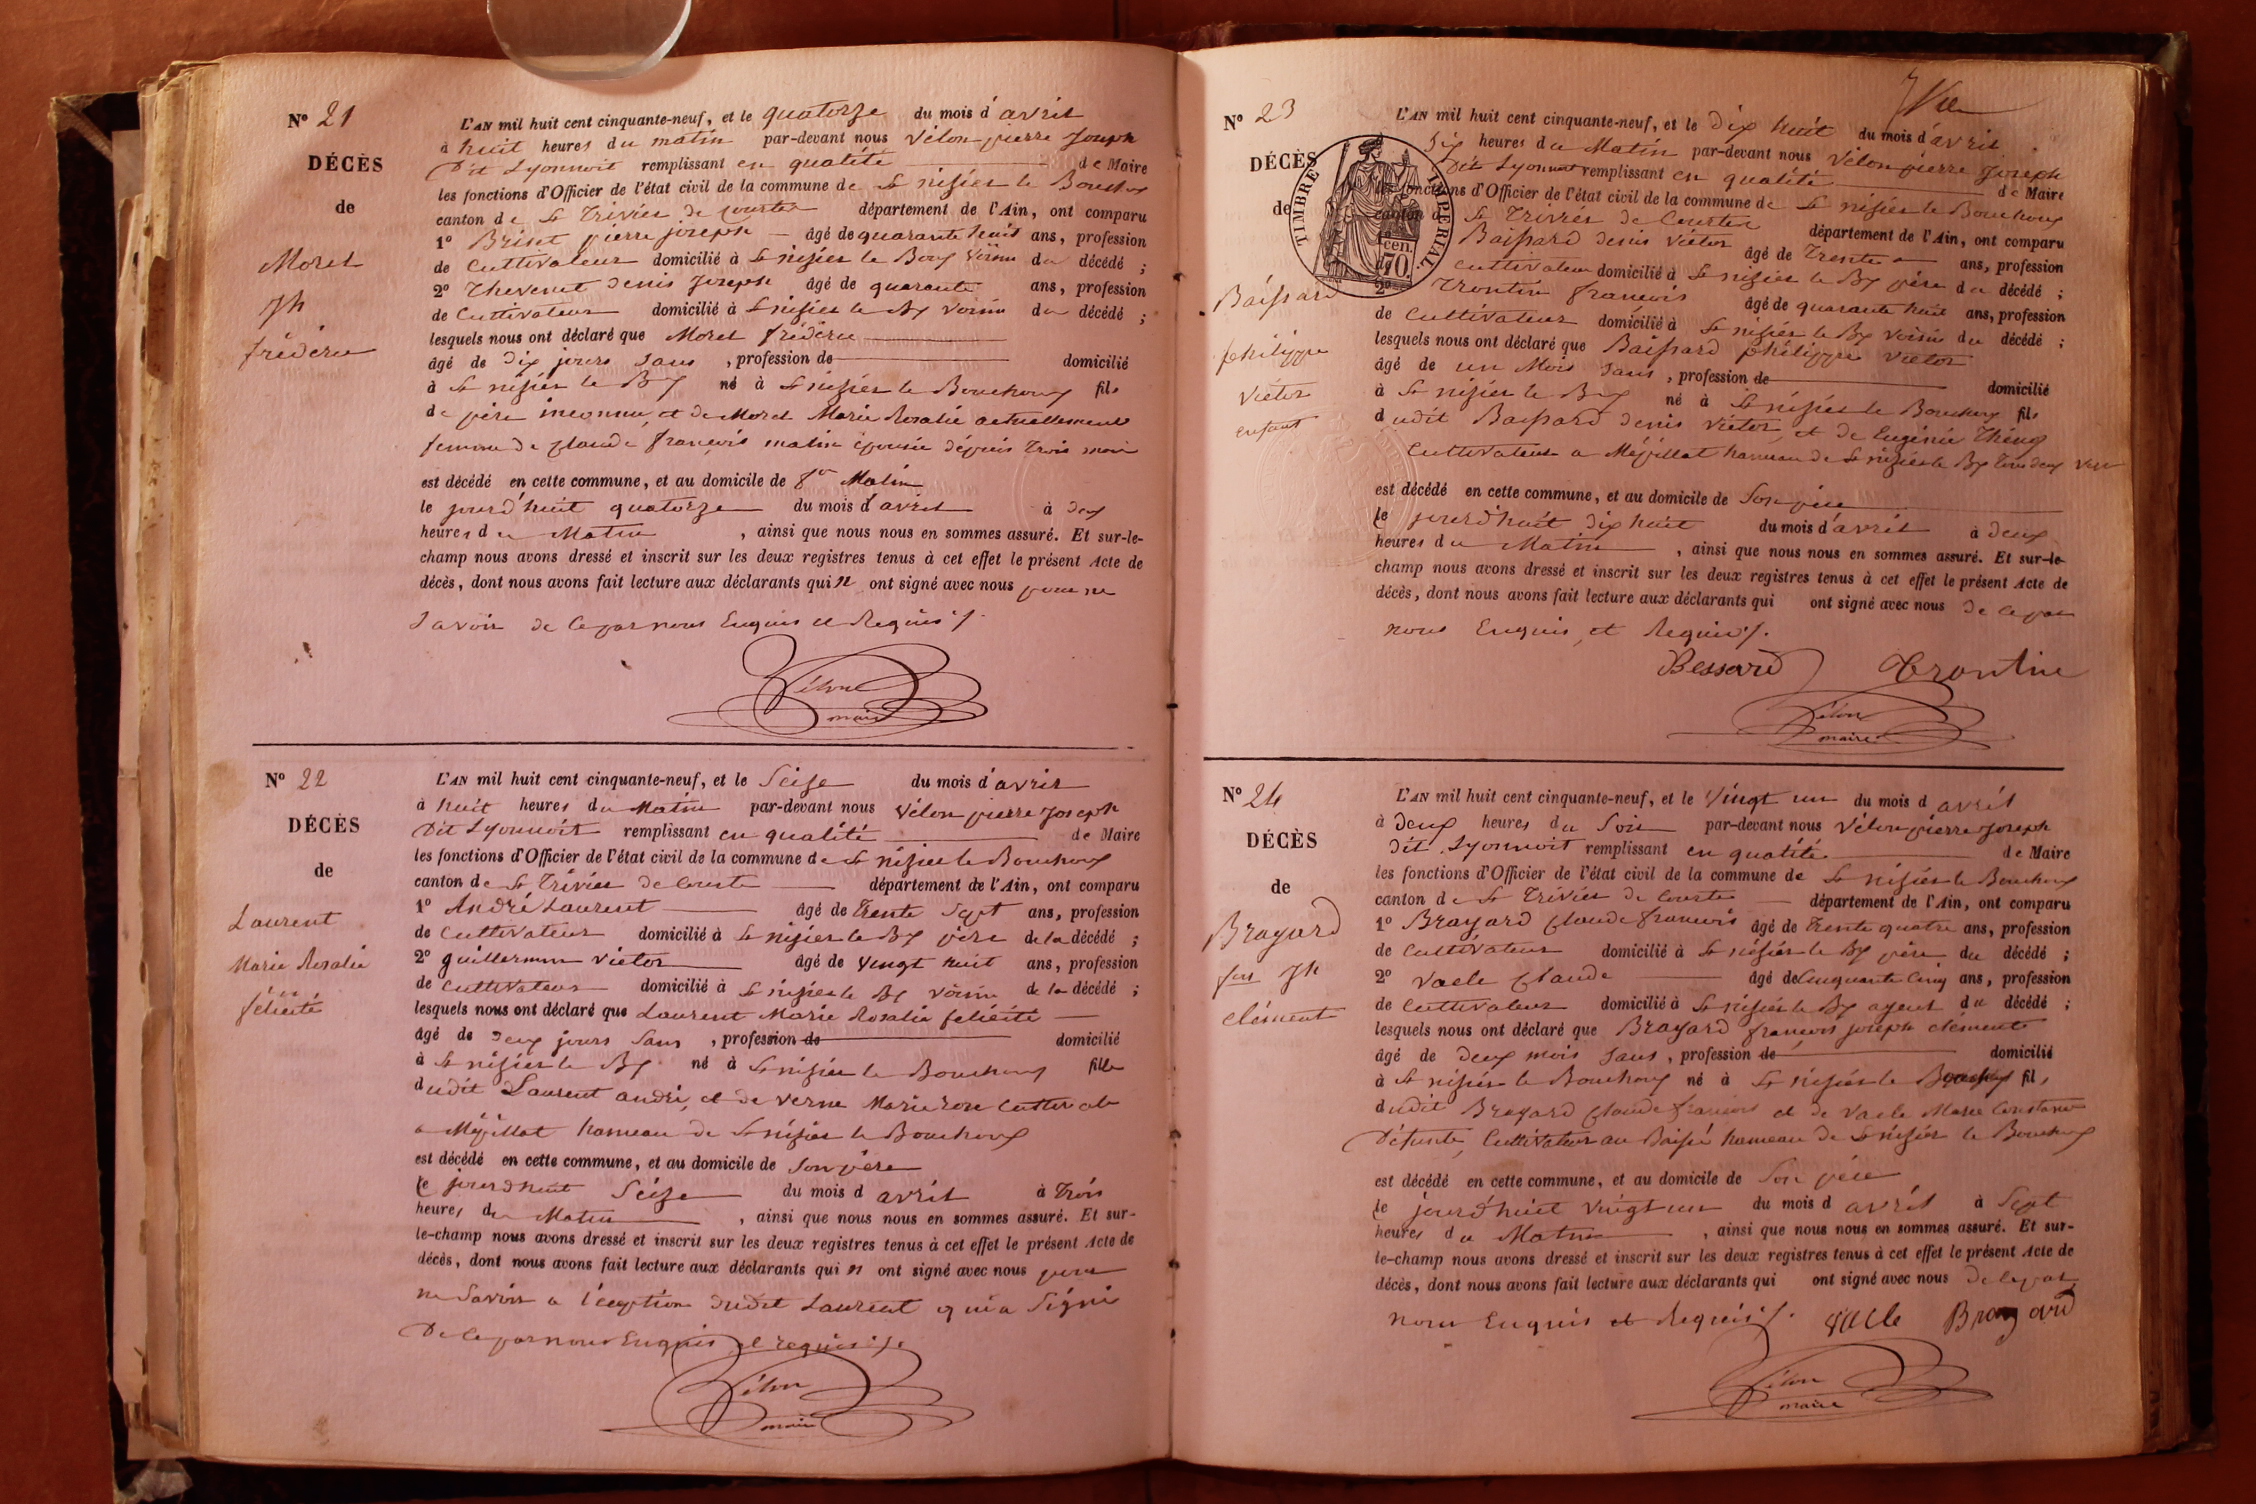 N° 21
DÉCÈS
de
Morel
Jh
fréderic
L'AN mil huit cent cinquante-neuf, et le quatorze du mois d'avril
à huit heures du matin par-devant nous Vélon pierre Joseph
Dit Lyonnoit remplissant en qualité de Maire
les fonctions d'Officier de l'état civil de la commune de St nisier le Bouchoux
canton de St Trivier de Courtes département de l'Ain, ont comparu
1° pierre joseph âgé de quarante huit ans, profession
de Cultivateur domicilié à St nisier le Boux voisin du décédé ;
2° Thevenet denis Joseph âgé de quarante ans, profession
de Cultivateur domicilié à St nisier le Bx voisin du décédé ;
lesquels nous ont déclaré que Morel fréderic
âgé de dix jours sans , profession de domicilié
à St nisier le Bx né à St nisier le Bouchoux fils
de père inconnu, et de Morel Marie Rosalie actuellement
femme de Claude françois matin épousée dépuis trois mois
est décédé en cette commune, et au domicile de Matin
le jourd'huit quatorze du mois d'avril à deux
heures du Matin , ainsi que nous nous en sommes assuré. Et sur-le-
champ nous avons dressé et inscrit sur les deux registres tenus à cet effet le présent Acte de
décès, dont nous avons fait lecture aux déclarants qui n ont signé avec nous pour ne
savoir de ce par nous Enquis et Requis ./.
Vélon
maire
N° 22
DÉCÈS
de
Laurent
Marie Rosalie
félicité
L'AN mil huit cent cinquante-neuf, et le Seize du mois d'avril
à huit heures du Matin par-devant nous Vélon pierre Joseph
Dit Lyonnoit remplissant en qualité de Maire
les fonctions d'Officier de l'état civil de la commune de St nisier le Bouchoux
canton de St Trivier de Courtes département de l'Ain, ont comparu
1° André Laurent âgé de Trente Sept ans, profession
de Cultivateur domicilié à St nisier le Bx père de la décédé ;
2° guillermin victor âgé de vingt huit ans, profession
de Cultivateur domicilié à St nisier le Bx voisin de la décédé ;
lesquels nous ont déclaré que Laurent Marie Rosalie félicité
âgé de deux jours sans , profession de domicilié
à St nisier le Bx né à St nisier le Bouchoux fille
dudit Laurent andré, et de Verne Marie rose
a Mézillat hameau de St nisier le Bouchoux
est décédé en cette commune, et au domicile de Son père
le jourd'huit Seize du mois d avril à trois
heures du Matin , ainsi que nous nous en sommes assuré. Et sur-
le-champ nous avons dressé et inscrit sur les deux registres tenus à cet effet le présent Acte de
décès, dont nous avons fait lecture aux déclarants qui n ont signé avec nous pour
ne savoir a l'éxeption dudit Laurent qui a Signé
De ce par nous Enquis et requis ./.
Vélon
maire
N° 23
DÉCÈS
de
Baissard
philippe
victor
enfant
TIMBRE IMPÉRIAL
cen.
70.
L'AN mil huit cent cinquante-neuf, et le dix huit du mois d'avril
Six heures du Matin par-devant nous Vélon pierre Joseph
Dit Lyonnoit remplissant en qualité de Maire
les fonctions d'Officier de l'état civil de la commune de St nisier le Bouchoux
canton de St Trivier de Courtes département de l'Ain, ont comparu
Baissard denis victor âgé de Trente ans, profession
Cultivateur domicilié à St nisier le Bx père du décédé ;
2° Trontin françois âgé de quarante huit ans, profession
de Cultivateur domicilié à St nisier le Bx voisin du décédé ;
lesquels nous ont déclaré que Baissard philippe victor
âgé de un Mois sans , profession de domicilié
à St nisier le Bx né à St nisier le Bouchoux fils
dudit Baissard denis victor, et de Eugénie
Cultivateur a Mézillat hameau de St nisier le Bx
est décédé en cette commune, et au domicile de Son père
le jourd'huit dix huit du mois d'avril à deux
heures du Matin , ainsi que nous nous en sommes assuré. Et sur-le-
champ nous avons dressé et inscrit sur les deux registres tenus à cet effet le présent Acte de
décès, dont nous avons fait lecture aux déclarants qui ont signé avec nous de ce par
nous Enquis, et Requis ./.
Bessard Trontin
Vélon
maire
N° 24
DÉCÈS
de
Brayard
fois Jh
clément
L'AN mil huit cent cinquante-neuf, et le vingt un du mois d avril
à deux heures du Soir par-devant nous Vélon pierre Joseph
dit Lyonnoit remplissant en qualité de Maire
les fonctions d'Officier de l'état civil de la commune de St nisier le Bouchoux
canton de St Trivier de Courtes département de l'Ain, ont comparu
1° Brayard Claude françois âgé de trente quatre ans, profession
de Cultivateur domicilié à St nisier le Bx père du décédé ;
2° Vacle Claude âgé de Cinquante Cinq ans, profession
de Cultivateur domicilié à St nisier le Bx ayeul du décédé ;
lesquels nous ont déclaré que Brayard françois joseph clément
âgé de deux mois sans , profession de domicilié
à St nisier le Bouchoux né à St nisier le Bouchoux fils
dudit Brayard Claude françois et de Vacle Marie Constance
Défunte, Cultivateur au hameau de St nisier le Bouchoux
est décédé en cette commune, et au domicile de Son père
le jourd'huit vingt un du mois d avril à Sept
heures du Matin , ainsi que nous nous en sommes assuré. Et sur-
le-champ nous avons dressé et inscrit sur les deux registres tenus à cet effet le présent Acte de
décès, dont nous avons fait lecture aux déclarants qui ont signé avec nous de ce par
nous Enquis et Requis ./. vacle Brayard
Vélon
maire